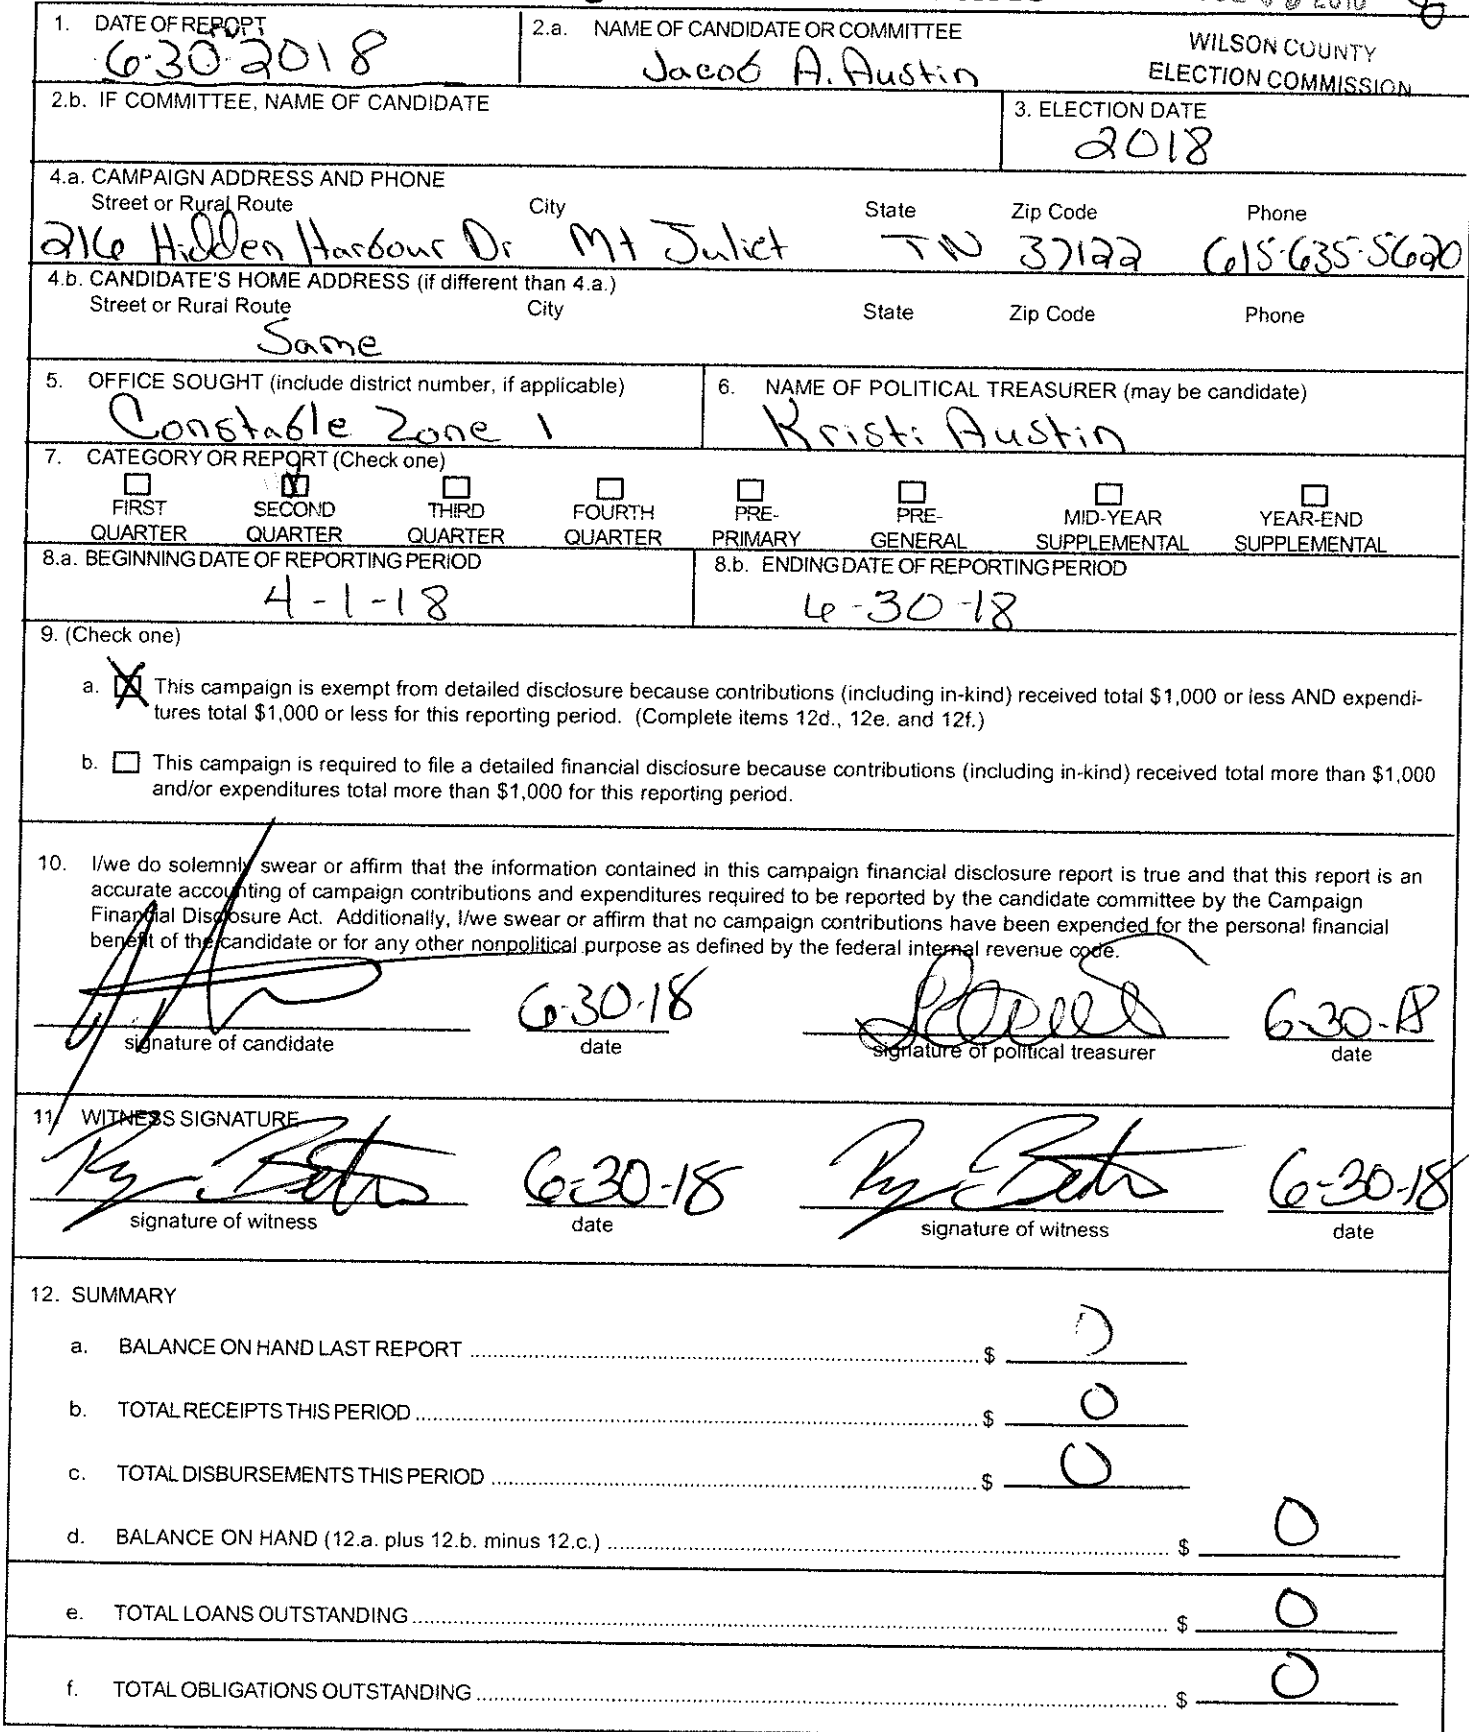 1. DATE OF REPORT
6-30-2018
2.a. NAME OF CANDIDATE OR COMMITTEE
Jacob A. Austin
WILSON COUNTY
ELECTION COMMISSION
2.b. IF COMMITTEE, NAME OF CANDIDATE
3. ELECTION DATE
2018
4.a. CAMPAIGN ADDRESS AND PHONE
Street or Rural Route City State Zip Code Phone
216 Hidden Harbour Dr Mt Juliet TN 37122 615-635-5620
4.b. CANDIDATE'S HOME ADDRESS (if different than 4.a.)
Street or Rural Route City State Zip Code Phone
Same
5. OFFICE SOUGHT (include district number, if applicable)
Constable Zone 1
6. NAME OF POLITICAL TREASURER (may be candidate)
Kristi Austin
7. CATEGORY OR REPORT (Check one)
FIRST QUARTER
SECOND QUARTER
THIRD QUARTER
FOURTH QUARTER
PRE-PRIMARY
PRE-GENERAL
MID-YEAR SUPPLEMENTAL
YEAR-END SUPPLEMENTAL
8.a. BEGINNING DATE OF REPORTING PERIOD
4-1-18
8.b. ENDING DATE OF REPORTING PERIOD
6-30-18
9. (Check one)
a. X This campaign is exempt from detailed disclosure because contributions (including in-kind) received total $1,000 or less AND expendi-
tures total $1,000 or less for this reporting period. (Complete items 12d., 12e. and 12f.)
b. This campaign is required to file a detailed financial disclosure because contributions (including in-kind) received total more than $1,000
and/or expenditures total more than $1,000 for this reporting period.
10. I/we do solemnly swear or affirm that the information contained in this campaign financial disclosure report is true and that this report is an
accurate accounting of campaign contributions and expenditures required to be reported by the candidate committee by the Campaign
Financial Disclosure Act. Additionally, I/we swear or affirm that no campaign contributions have been expended for the personal financial
benefit of the candidate or for any other nonpolitical purpose as defined by the federal internal revenue code.
6-30-18 6-30-18
signature of candidate date signature of political treasurer date
11. WITNESS SIGNATURE
6-30-18 6-30-18
signature of witness date signature of witness date
12. SUMMARY
a. BALANCE ON HAND LAST REPORT $ 0
b. TOTAL RECEIPTS THIS PERIOD $ 0
c. TOTAL DISBURSEMENTS THIS PERIOD $ 0
d. BALANCE ON HAND (12.a. plus 12.b. minus 12.c.) $ 0
e. TOTAL LOANS OUTSTANDING $ 0
f. TOTAL OBLIGATIONS OUTSTANDING $ 0